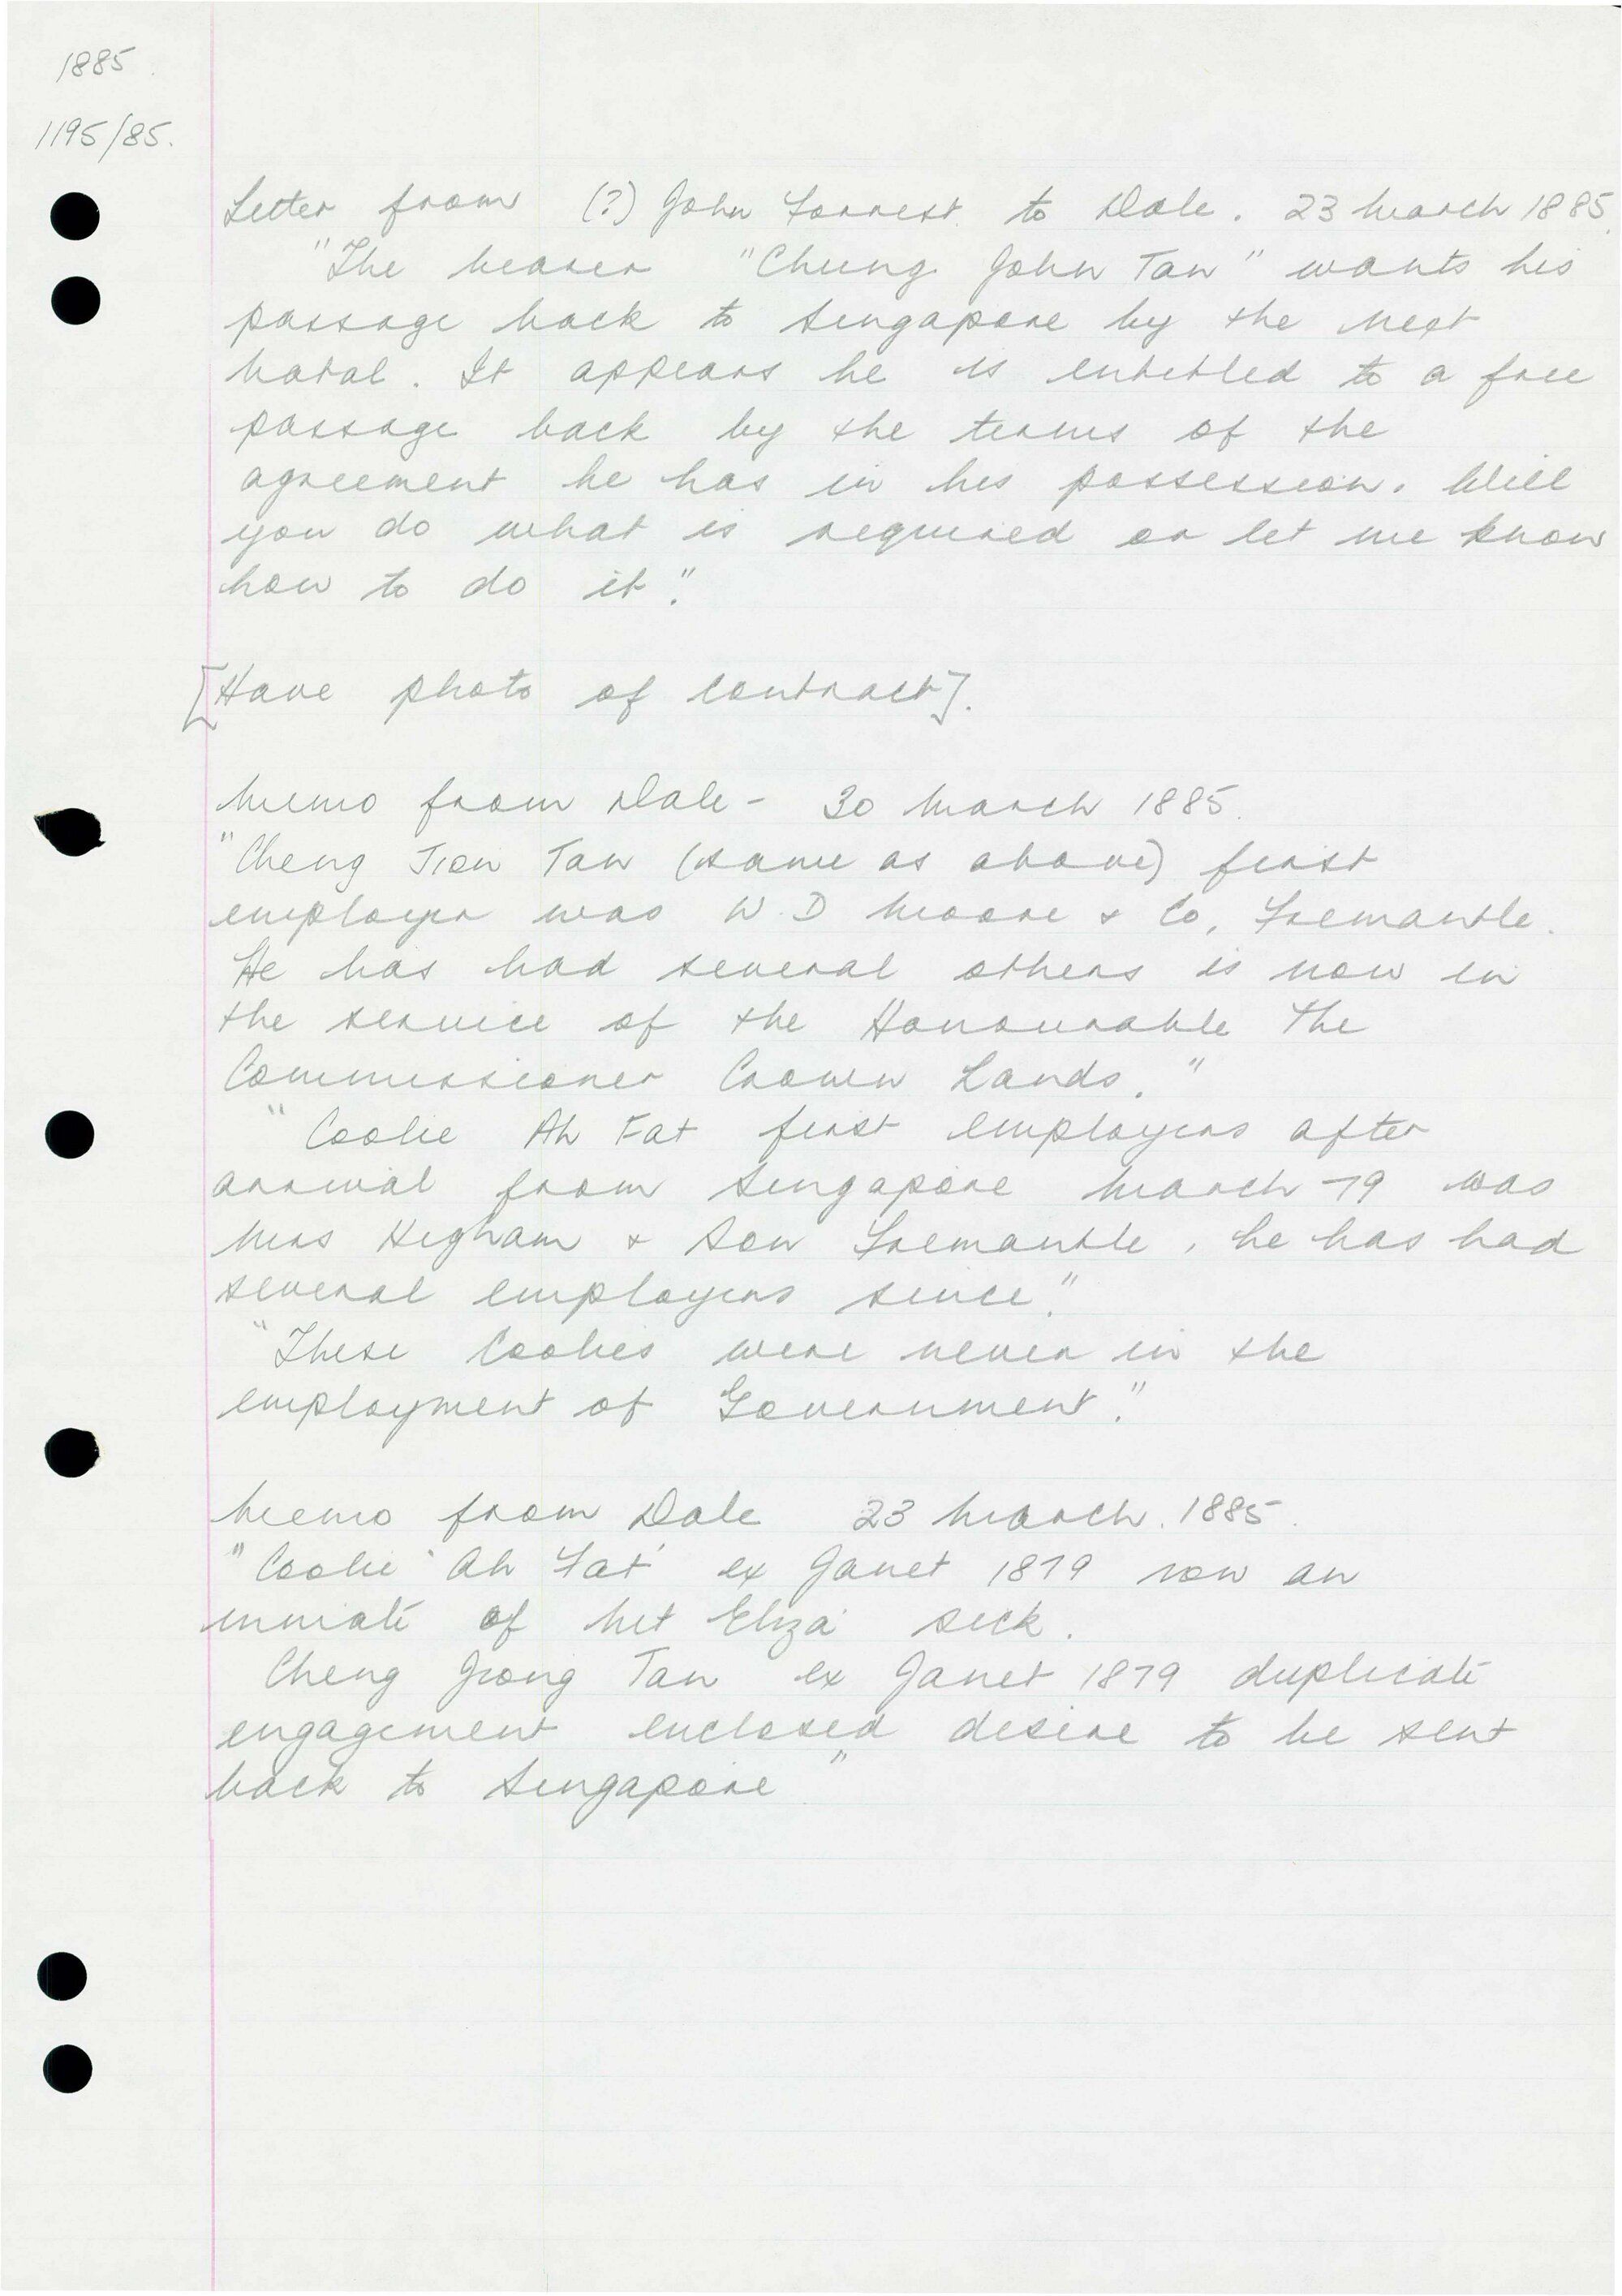 1885.
1195/85.
Letter from (?) John Forrest. to Dale. 23 March 1885.
"The bearer "Chung John Tan" wants his
passage back to Singapore by the next
Natal. It appears he is entitled to a free
passage back by the terms of the
agreement he has in his possession. Will
you do what is required or let me know
how to do it".
[Have photo of contract].
Memo from Dale - 30 March 1885.
"Cheng Tion Tan (same as above) first
employer was W. D Moore & Co, Fremantle.
He has had several others is now in
the service of the Honourable The
Commissioner Crown Lands."
"Coolie Ah Fat first employers after
arrival from Singapore March 79 was
Higham & Son Fremantle, he has had
several employers since."
"These Coolies were never in the
employment of Government."
Memo from Dale 23 March. 1885.
"Coolie 'Ah Fat' ex Janet 1879 now an
inmate of Mt Eliza sick.
Cheng Jrong Tan ex Janet 1879 duplicate
engagement enclosed desire to be sent
back to Singapore"